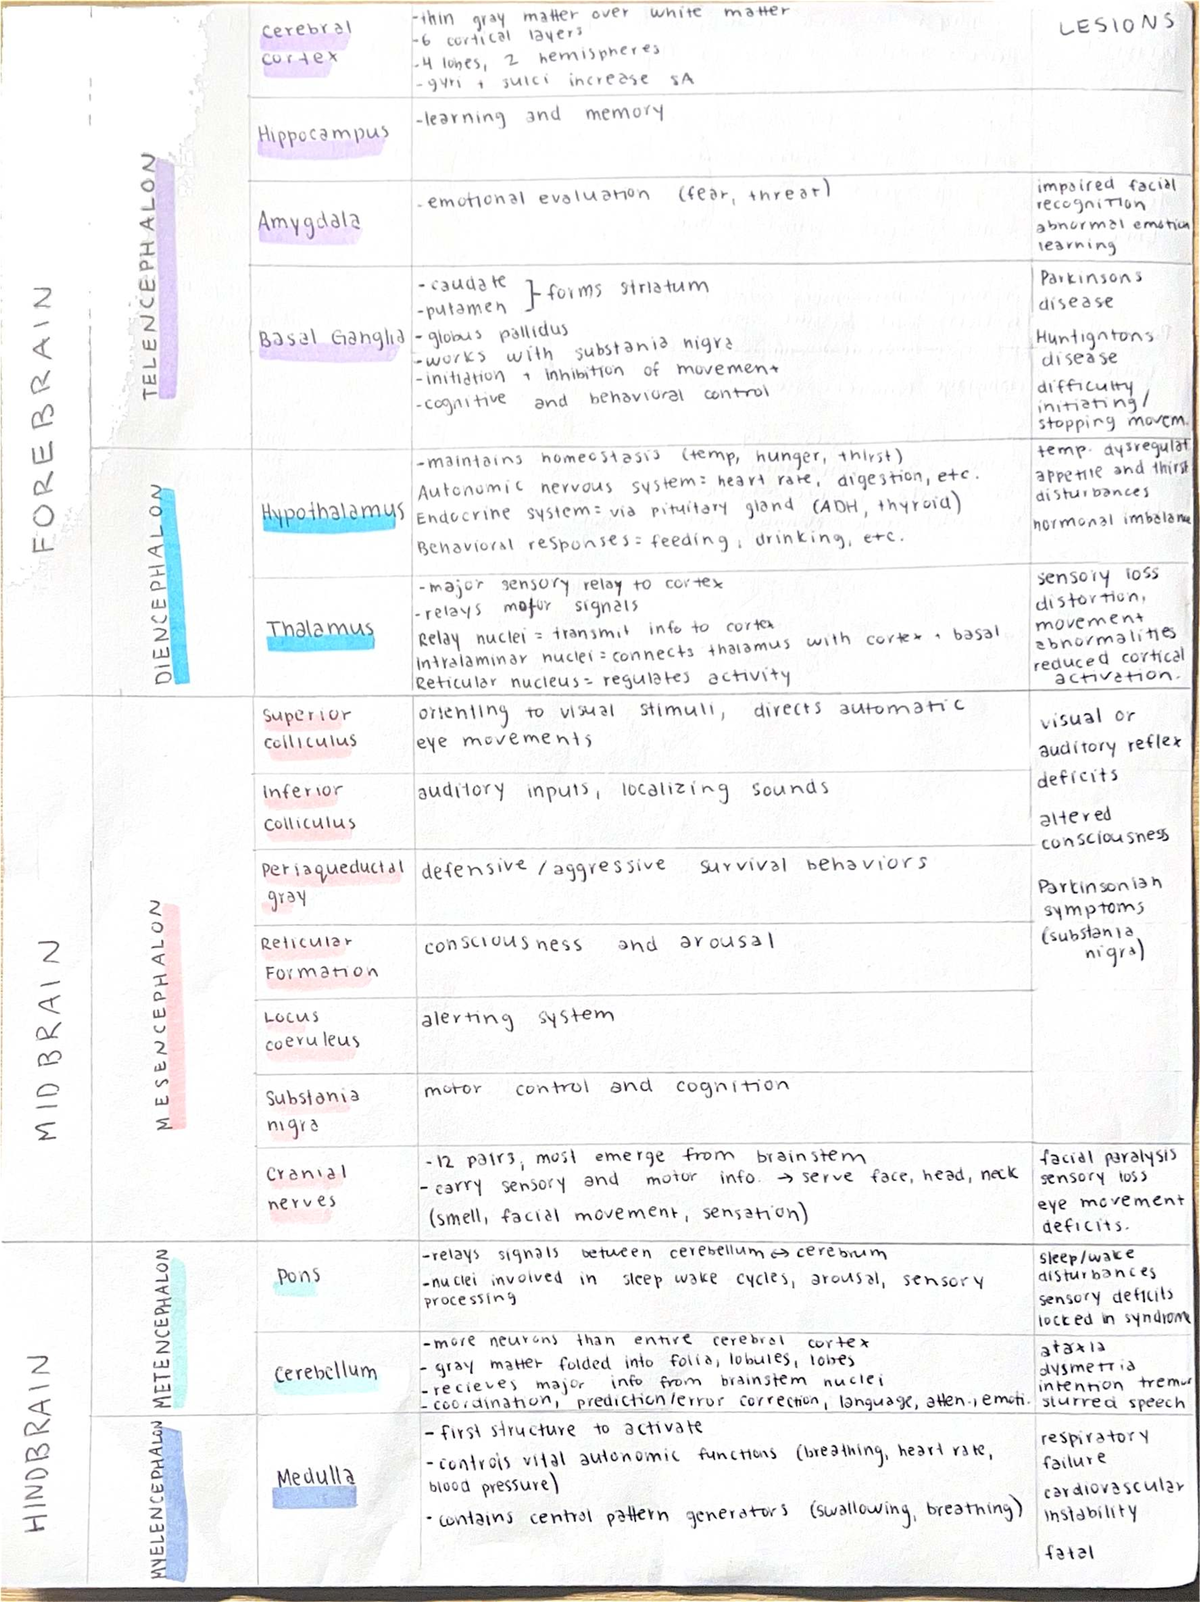 LESIONS
FOREBRAIN
TELENCEPHALON
cerebral
cortex
-thin gray matter over white matter
-6 cortical layers
-4 lobes, 2 hemispheres
-gyri + sulci increase SA
Hippocampus
-learning and memory
Amygdala
-emotional evaluation (fear, threat)
impaired facial
recognition
abnormal emotion
learning
Basal Ganglia
-caudate
-putamen } forms striatum
-globus pallidus
-works with substania nigra
-initiation + inhibition of movement
-cognitive and behavioral control
Parkinsons
disease
Huntigntons
disease
difficulty
initiating/
stopping movem.
DIENCEPHALON
Hypothalamus
-maintains homeostasis (temp, hunger, thirst)
Autonomic nervous system= heart rate, digestion, etc.
Endocrine system= via pituitary gland (ADH, thyroid)
Behavioral responses= feeding, drinking, etc.
temp. dysregulat
appetite and thirst
disturbances
hormonal imbalanc
Thalamus
-major sensory relay to cortex
-relays motor signals
Relay nuclei = transmit info to cortex
Intralaminar nuclei = connects thalamus with cortex + basal
Reticular nucleus= regulates activity
sensory loss
distortion,
movement
abnormalities
reduced cortical
activation.
MIDBRAIN
MESENCEPHALON
Superior
colliculus
orienting to visual stimuli, directs automatic
eye movements
Inferior
colliculus
auditory inputs, localizing sounds
Periaqueductal
gray
defensive/aggressive survival behaviors
Reticular
Formation
consciousness and arousal
Locus
coeruleus
alerting system
Substania
nigra
motor control and cognition
visual or
auditory reflex
deficits
altered
consciousness
Parkinsonian
symptoms
(substania
nigra)
Cranial
nerves
-12 pairs, most emerge from brainstem
- carry sensory and motor info. → serve face, head, neck
(smell, facial movement, sensation)
facial paralysis
sensory loss
eye movement
deficits.
HINDBRAIN
METENCEPHALON
Pons
-relays signals between cerebellum ↔ cerebrum
-nuclei involved in sleep wake cycles, arousal, sensory
processing
sleep/wake
disturbances
sensory deficits
locked in syndrome
Cerebellum
-more neurons than entire cerebral cortex
- gray matter folded into folia, lobules, lobes
-recieves major info from brainstem nuclei
-coordination, prediction/error correction, language, atten., emoti.
ataxia
dysmetria
intention tremor
slurred speech
MYELENCEPHALON
Medulla
- first structure to activate
-controls vital autonomic functions (breathing, heart rate,
blood pressure)
-contains central pattern generators (swallowing, breathing)
respiratory
failure
cardiovascular
instability
fatal